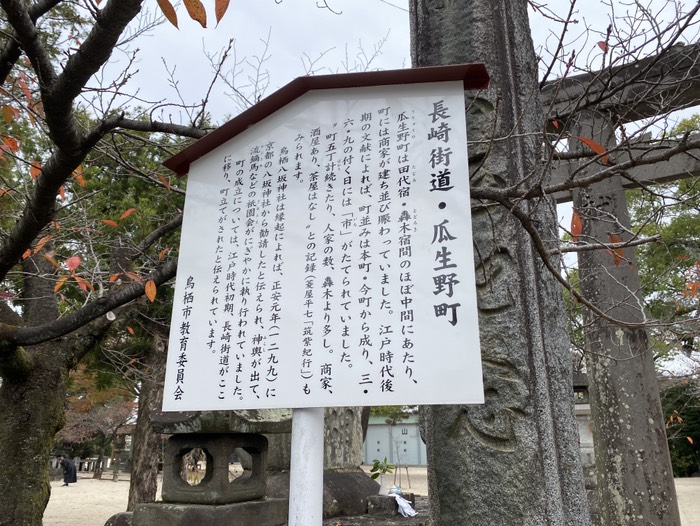 長崎街道・瓜生野町
瓜生野町は田代宿・轟木宿間のほぼ中間にあたり、
町には商家が建ち並び賑わっていました。江戸時代後
期の文献によれば、町並みは本町・今町から成り、三・
六・九の付く日には「市」がたてられていました。
“町五丁計続きたり、人家の数、轟木より多し。商家、
酒屋あり、茶屋はなし”との記録(菱屋平七「筑紫紀行」)も
みられます。
鳥栖八坂神社は縁起によれば、正安元年(一二九九)に
京都の八坂神社から勧請したと伝えられ、神輿が出て、
流鏑馬などの祇園会がにぎやかに執り行われていました。
町の成立については、江戸時代初期、長崎街道がここ
に移り、町立てがされたと伝えられています。
鳥栖市教育委員会